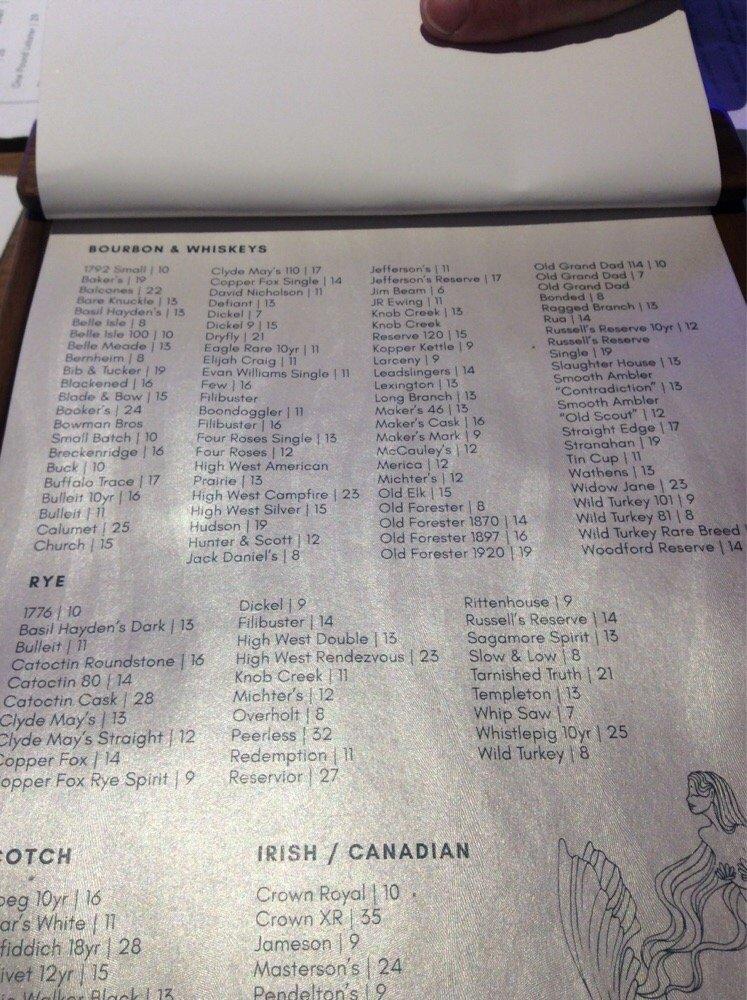 One Pound Lobster | 29
BOURBON & WHISKEYS
1792 Small | 10
Baker's | 19
Balcones | 22
Bare Knuckle | 13
Basil Hayden's | 13
Belle Isle | 8
Belle Isle 100 | 10
Belle Meade | 13
Bernheim | 8
Bib & Tucker | 19
Blackened | 16
Blade & Bow | 15
Booker's | 24
Bowman Bros
Small Batch | 10
Breckenridge | 16
Buck | 10
Buffalo Trace | 17
Bulleit 10yr | 16
Bulleit | 11
Calumet | 25
Church | 15
Clyde May's 110 | 17
Copper Fox Single | 14
David Nicholson | 11
Defiant | 13
Dickel | 7
Dickel 9 | 15
Dryfly | 21
Eagle Rare 10yr | 11
Elijah Craig | 11
Evan Williams Single | 11
Few | 16
Filibuster
Boondoggler | 11
Filibuster | 16
Four Roses Single | 13
Four Roses | 12
High West American
Prairie | 13
High West Campfire | 23
High West Silver | 15
Hudson | 19
Hunter & Scott | 12
Jack Daniel's | 8
Jefferson's | 11
Jefferson's Reserve | 17
Jim Beam | 6
JR Ewing | 11
Knob Creek | 13
Knob Creek
Reserve 120 | 15
Kopper Kettle | 9
Larceny | 9
Leadslingers | 14
Lexington | 13
Long Branch | 13
Maker's 46 | 13
Maker's Cask | 16
Maker's Mark | 9
McCauley's | 12
Merica | 12
Michter's | 12
Old Elk | 15
Old Forester | 8
Old Forester 1870 | 14
Old Forester 1897 | 16
Old Forester 1920 | 19
Old Grand Dad 114 | 10
Old Grand Dad | 7
Old Grand Dad
Bonded | 8
Ragged Branch | 13
Rua | 14
Russell's Reserve 10yr | 12
Russell's Reserve
Single | 19
Slaughter House | 13
Smooth Ambler
"Contradiction" | 13
Smooth Ambler
"Old Scout" | 12
Straight Edge | 17
Stranahan | 19
Tin Cup | 11
Wathens | 13
Widow Jane | 23
Wild Turkey 101 | 9
Wild Turkey 81 | 8
Wild Turkey Rare Breed
Woodford Reserve | 14
RYE
1776 | 10
Basil Hayden's Dark | 13
Bulleit | 11
Catoctin Roundstone | 16
Catoctin 80 | 14
Catoctin Cask | 28
Clyde May's | 13
Clyde May's Straight | 12
Copper Fox | 14
opper Fox Rye Spirit | 9
Dickel | 9
Filibuster | 14
High West Double | 13
High West Rendezvous | 23
Knob Creek | 11
Michter's | 12
Overholt | 8
Peerless | 32
Redemption | 11
Reservior | 27
Rittenhouse | 9
Russell's Reserve | 14
Sagamore Spirit | 13
Slow & Low | 8
Tarnished Truth | 21
Templeton | 13
Whip Saw | 7
Whistlepig 10yr | 25
Wild Turkey | 8
COTCH
beg 10yr | 16
ar's White | 11
fiddich 18yr | 28
ivet 12yr | 15
Walker Black | 13
IRISH / CANADIAN
Crown Royal | 10
Crown XR | 35
Jameson | 9
Masterson's | 24
Pendelton's | 9